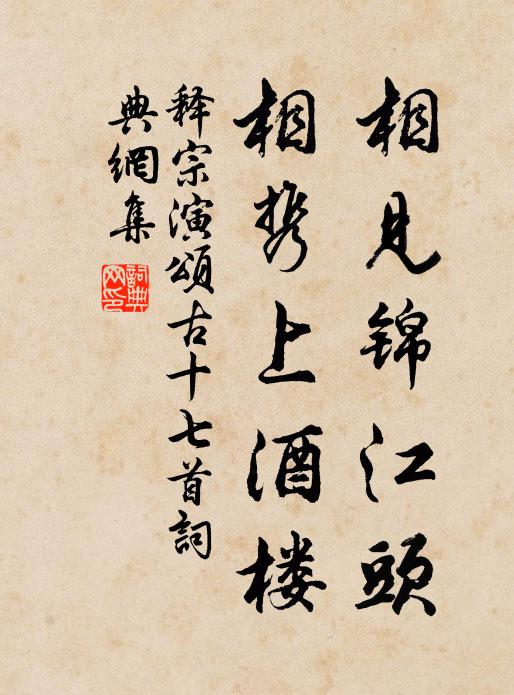 相见锦江頭
相携上酒楼
释宗演頌古十七首詞
典網集
詞典網印